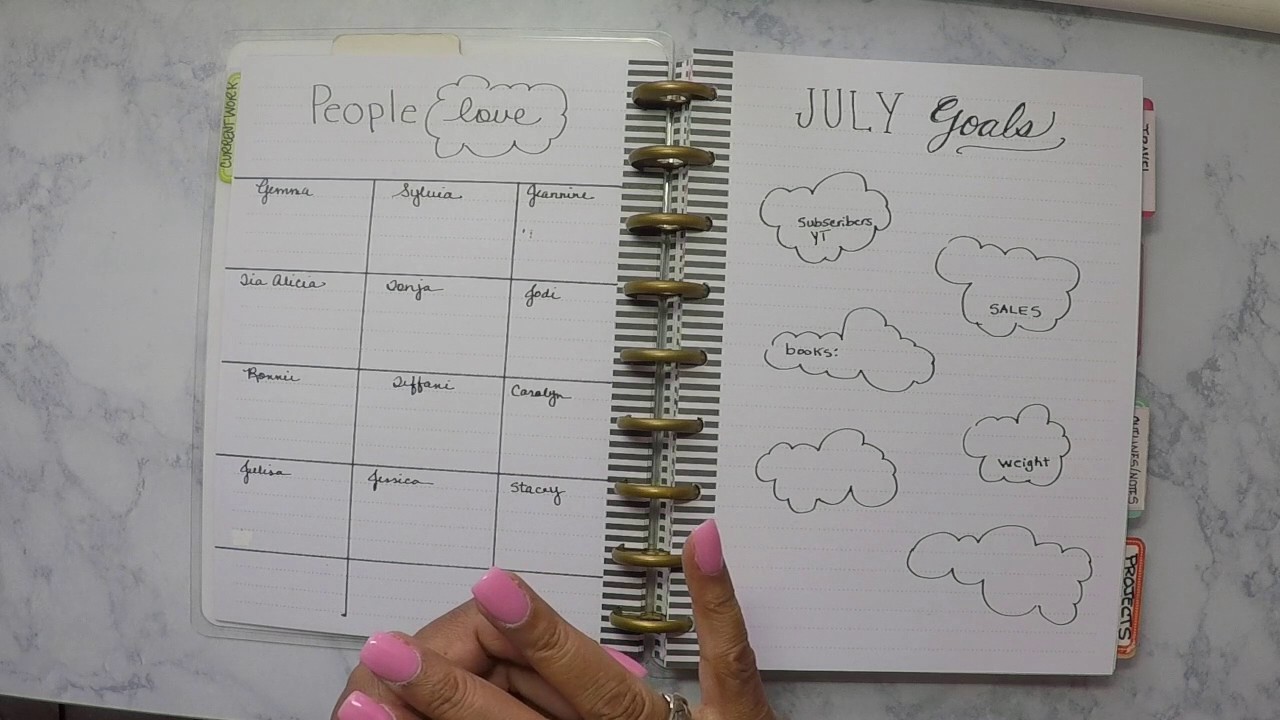 CURRENT WORK
People love
Gemma
Sylvia
Jeannine
Tia Alicia
Tonja
Jodi
Ronnie
Tiffani
Carolyn
Julisa
Jessica
Stacey
JULY Goals
Subscribers
YT
SALES
books:
weight
TRAVEL
OUTLINES/NOTES
PROJECTS